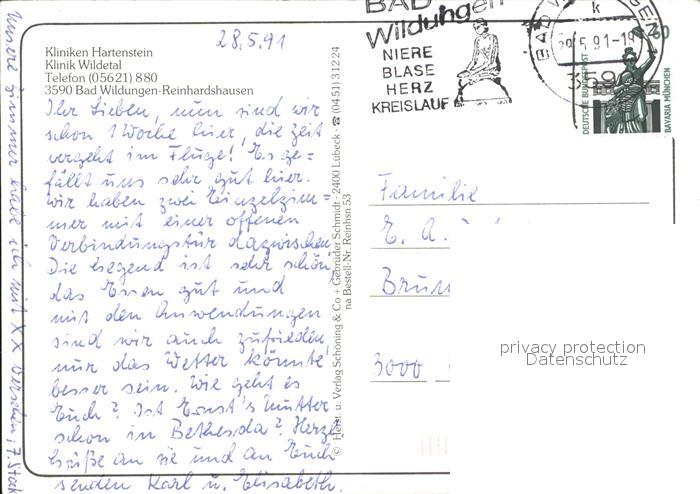 Kliniken Hartenstein
Klinik Wildetal
Telefon (05621) 880
3590 Bad Wildungen-Reinhardshausen
28.5.91
Ihr Lieben, nun sind wir
schon 1 Woche hier, die Zeit
vergeht im Fluge! Es ge=
fällt uns sehr gut hier.
Wir haben zwei Einzelzim=
mer mit einer offenen
Verbindungstür dazwischen.
Die Gegend ist sehr schön,
das Essen gut und
mit den Anwendungen
sind wir auch zufrieden,
nur das Wetter könnte
besser sein. Wie geht es
Euch? Ist Ernst's Mutter
schon in Bethesda? Herzl.
Grüße an sie und an Euch
senden Karl u. Elisabeth.
Unsere Zimmer habe ich mit XX versehen, 7. Stock
© Herst. u. Verlag Schöning & Co + Gebrüder Schmidt · 2400 Lübeck · ☎ (04 51) 3 12 24
na Bestell-Nr. Reinhsn 53
BAD
Wildungen
NIERE
BLASE
HERZ
KREISLAUF
BAD
5.91-19
k
3590
60
DEUTSCHE BUNDESPOST
BAVARIA MÜNCHEN
Familie
E. A.
Brun
3000
privacy protection
Datenschutz